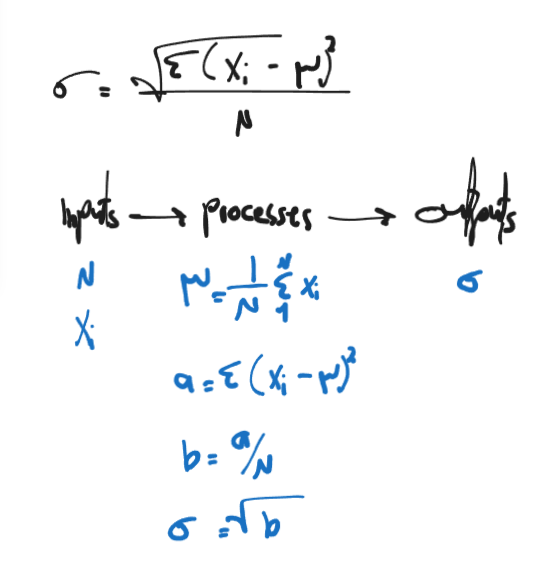 σ = √Σ(xᵢ - μ)² / N
Inputs → processes → outputs
N μ = 1/N Σ₁ᴺ xᵢ σ
xᵢ
a = Σ(xᵢ - μ)²
b = a/N
σ = √b